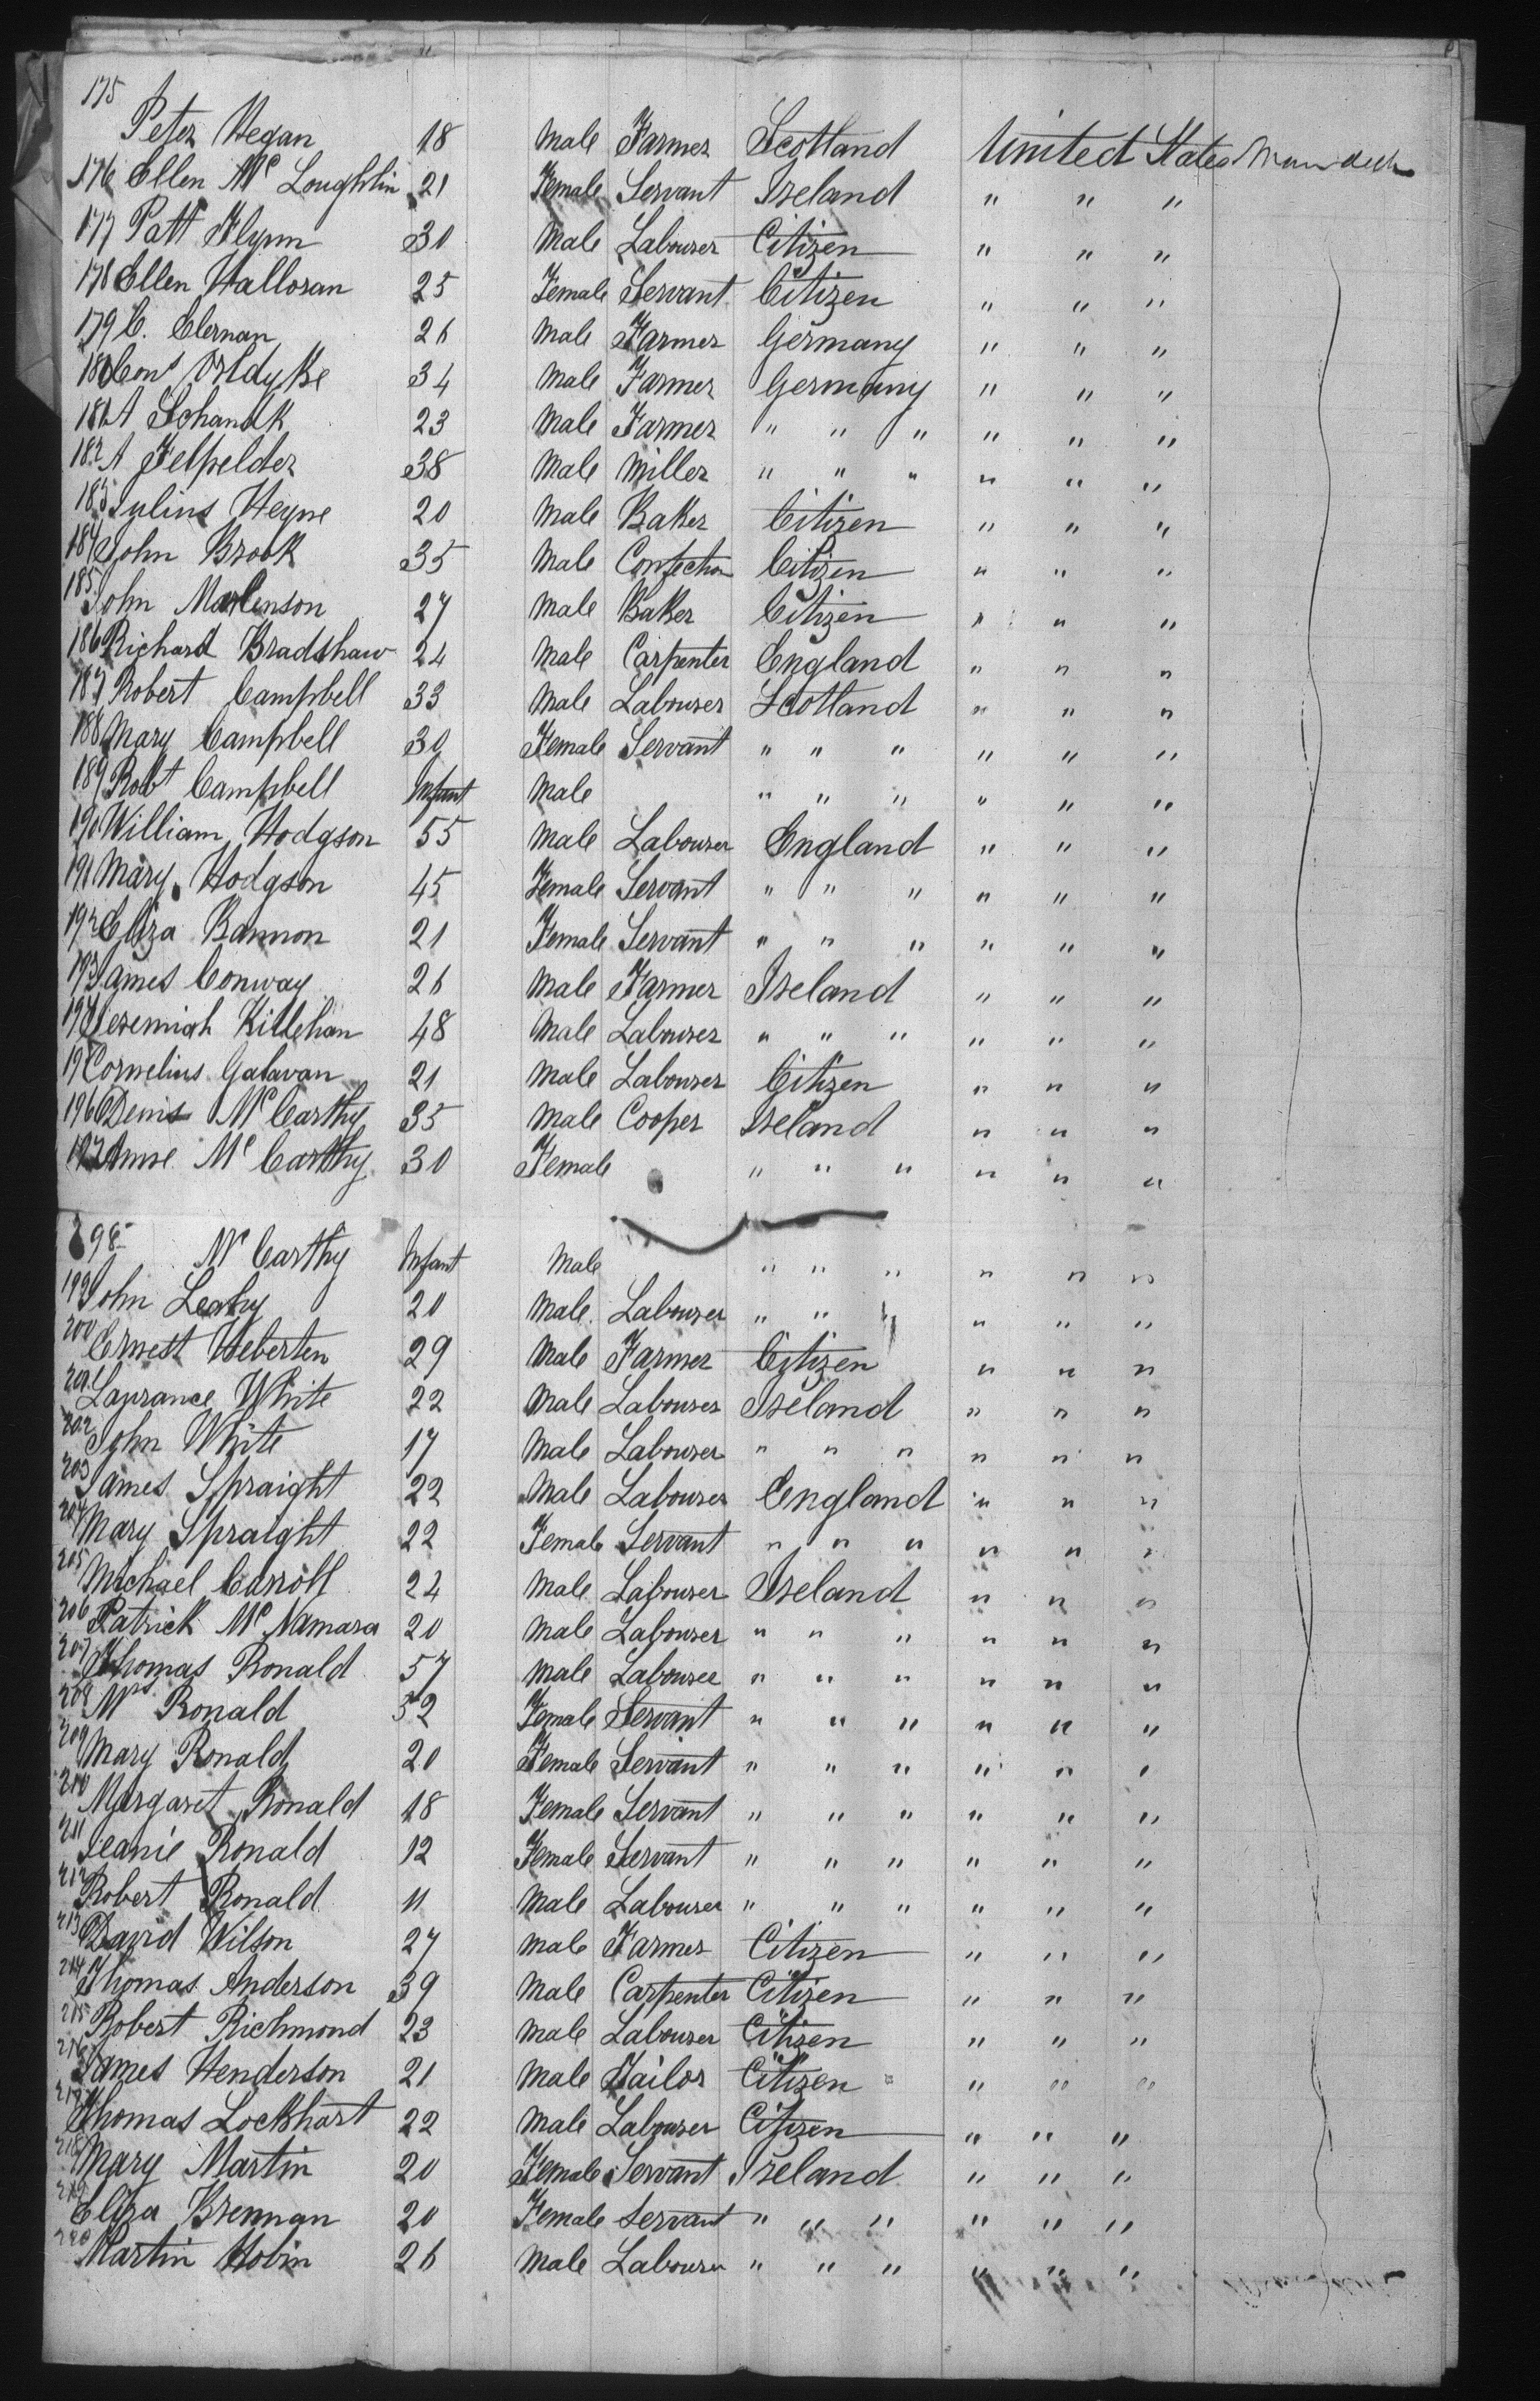 175
Peter Hegan 18 Male Farmer Scotland United States Main deck
176 Ellen Mc Loughlin 21 Female Servant Ireland " " "
177 Patt Flynn 30 Male Labourer Citizen " " "
178 Ellen Halloran 25 Female Servant Citizen " " "
179 C. Clernan 26 Male Farmer Germany " " "
180 34 Male Farmer Germany " " "
181 A Schandk 23 Male Farmer " " " " " "
182 A Felpelder 38 Male Miller " " " " " "
183 Julius Heyne 20 Male Baker Citizen " " "
184 John Brook 35 Male Confection Citizen " " "
185 John 27 Male Baker Citizen " " "
186 Richard Bradshaw 24 Male Carpenter England " " "
187 Robert Campbell 33 Male Labourer Scotland " " "
188 Mary Campbell 30 Female Servant " " " " " "
189 Robt Campbell Infant Male " " " " " "
190 William Hodgson 55 Male Labourer England " " "
191 Mary Hodgson 45 Female Servant " " " " " "
192 Eliza Bannon 21 Female Servant " " " " " "
193 James Conway 26 Male Farmer Ireland " " "
194 Jeremiah Killehan 48 Male Labourer " " " " " "
19 Cornelius Galavan 21 Male Labourer Citizen " " "
196 Denis Mc Carthy 35 Male Cooper Ireland " " "
197 Anne Mc Carthy 30 Female " " " " " "
198 Mc Carthy Infant Male " " " " " "
199 John Leahy 20 Male Labourer " " " " " "
200 Ernest Heberten 29 Male Farmer Citizen " " "
201 Laurance White 22 Male Labourer Ireland " " "
202 John White 17 Male Labourer " " " " " "
203 James Spraight 22 Male Labourer England " " "
204 Mary Spraight 22 Female Servant " " " " " "
205 Michael Carroll 24 Male Labourer Ireland " " "
206 Patrick Mc Namara 20 Male Labourer " " " " " "
207 Thomas Ronald 57 Male Labourer " " " " " "
208 Mrs Ronald 52 Female Servant " " " " " "
209 Mary Ronald 20 Female Servant " " " " " "
210 Margaret Ronald 18 Female Servant " " " " " "
211 Jeanie Ronald 12 Female Servant " " " " " "
212 Robert Ronald 11 Male Labourer " " " " " "
213 David Wilson 27 Male Farmer Citizen " " "
214 Thomas Anderson 39 Male Carpenter Citizen " " "
215 Robert Richmond 23 Male Labourer Citizen " " "
216 James Henderson 21 Male Tailor Citizen " " "
217 Thomas Lockhart 22 Male Labourer Citizen " " "
218 Mary Martin 20 Female Servant Ireland " " "
219 Eliza Brennan 20 Female Servant " " " " " "
220 Martin Hobin 26 Male Labourer " " " " " "